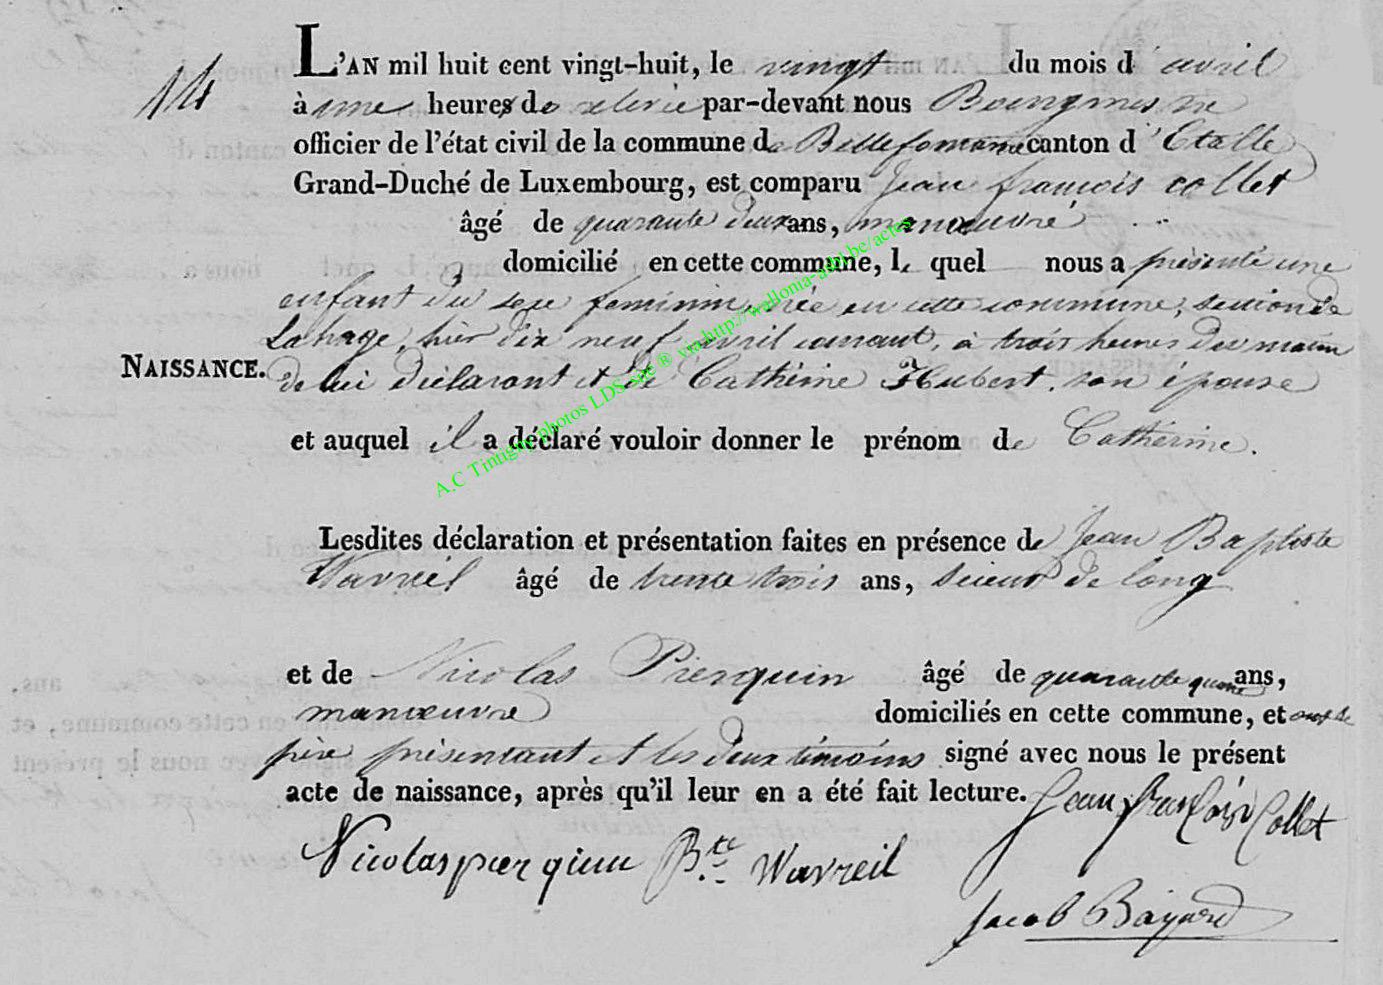 14
L'AN mil huit cent vingt-huit, le vingt du mois d'avril
à une heure de relevée par-devant nous Bourgmestre
officier de l'état civil de la commune de Bellefontaine canton d'Etalle
Grand-Duché de Luxembourg, est comparu Jean françois collet
âgé de quarante deux ans, manœuvre
domicilié en cette commune, le quel nous a présenté une
enfant du sexe feminin, née en cette commune, section de
Lahage, hier dix neuf avril courant, à trois heures du matin
NAISSANCE. de lui déclarant et de Cathérine Hubert, son épouse
et auquel il a déclaré vouloir donner le prénom de Cathérine.
Lesdites déclaration et présentation faites en présence de Jean Baptiste
Wavreil âgé de trente trois ans, scieur de long
et de Nicolas Pierquin âgé de quarante ans,
manœuvre domiciliés en cette commune, et ont le
père présentant et les deux témoins signé avec nous le présent
acte de naissance, après qu'il leur en a été fait lecture. Jean françois Collet
Nicolas pierquin Bte Wavreil
Jacob Bayard
A.C Tintigny photos LDS site ® via http://wallonia-asbl.be/actes